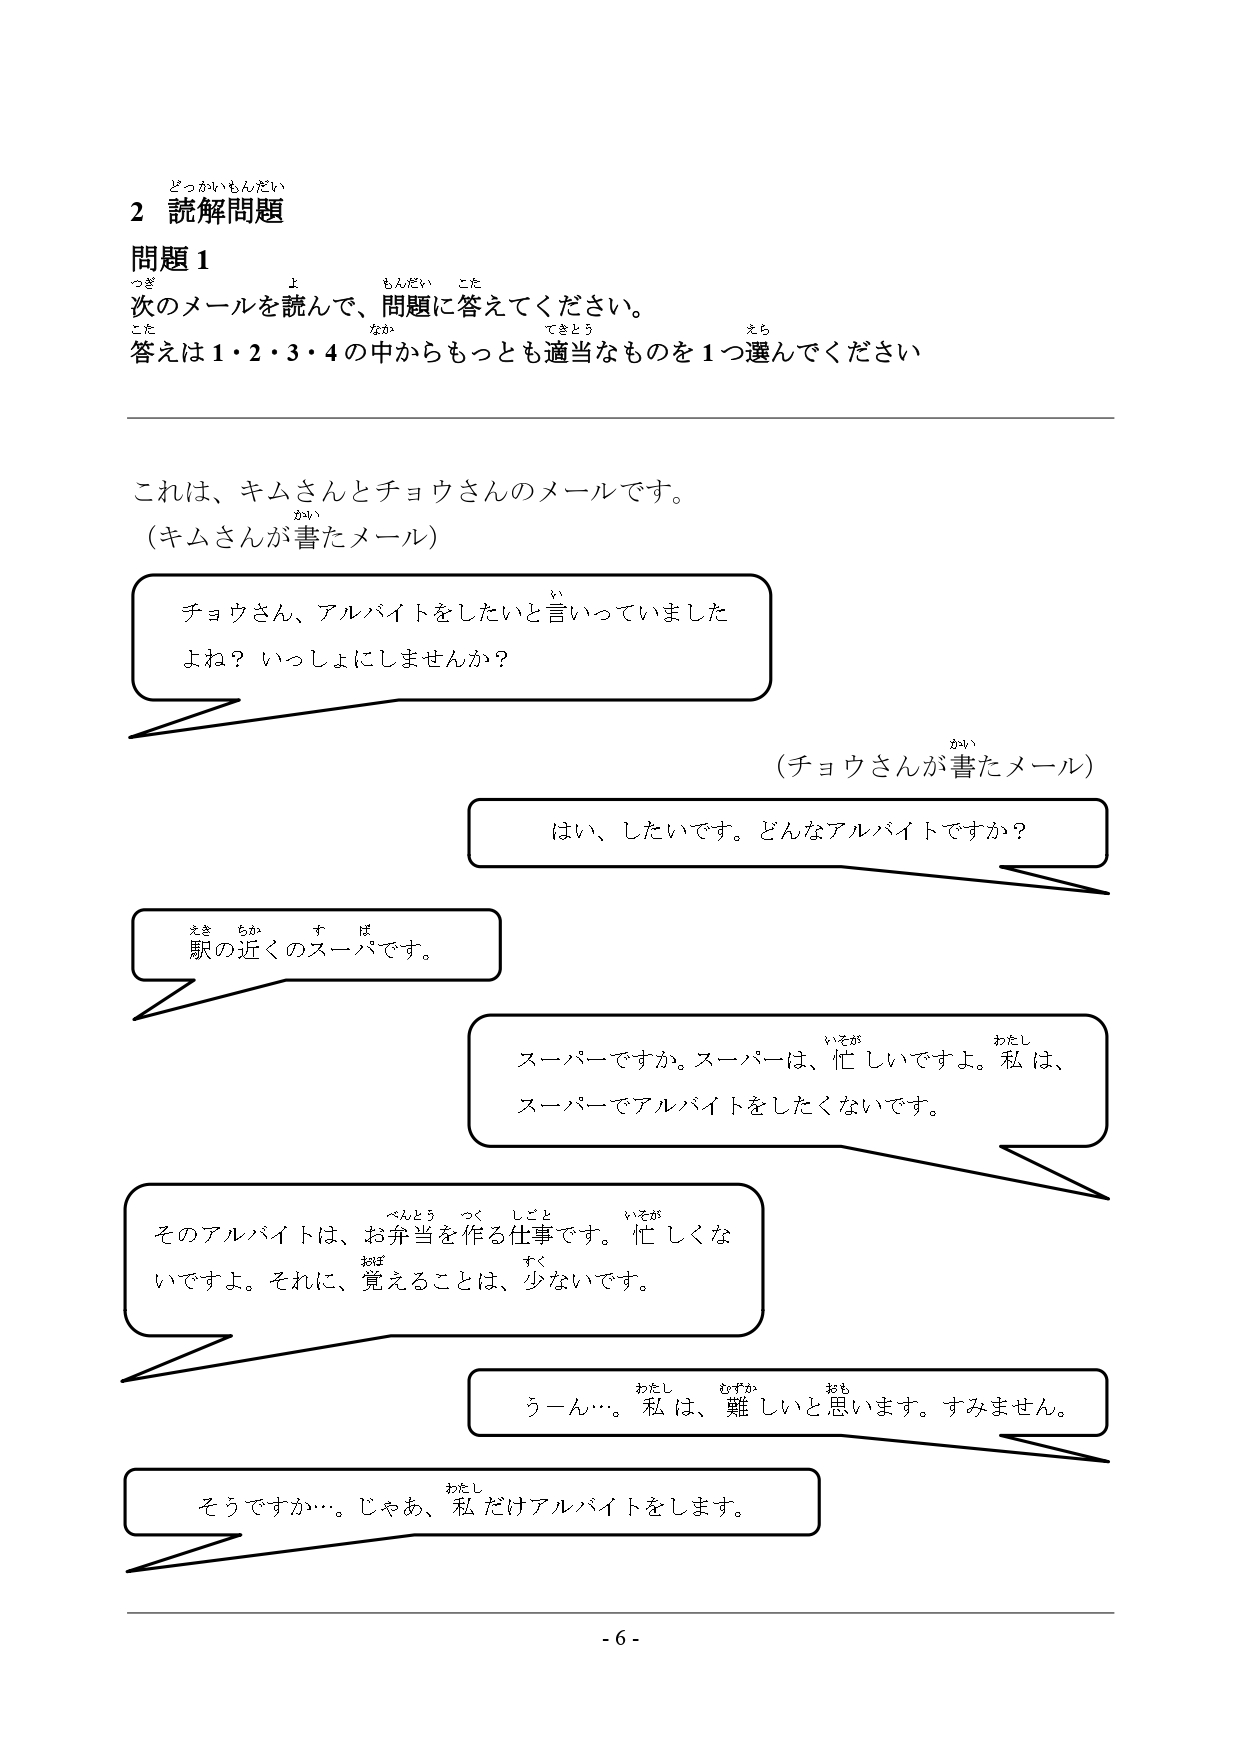 どっかいもんだい
2 読解問題
問題 1
つぎ よ もんだい こた
次のメールを読んで、問題に答えてください。
こた なか てきとう えら
答えは 1・2・3・4 の中からもっとも適当なものを 1 つ選んでください
これは、キムさんとチョウさんのメールです。
かい
（キムさんが書たメール）
い
チョウさん、アルバイトをしたいと言いっていました
よね？ いっしょにしませんか？
かい
（チョウさんが書たメール）
はい、したいです。どんなアルバイトですか？
えき ちか す ぱ
駅の近くのスーパです。
いそが わたし
スーパーですか。スーパーは、忙しいですよ。私は、
スーパーでアルバイトをしたくないです。
べんとう つく しごと いそが
そのアルバイトは、お弁当を作る仕事です。忙しくな
おぼ すく
いですよ。それに、覚えることは、少ないです。
わたし むずか おも
うーん…。私は、難しいと思います。すみません。
わたし
そうですか…。じゃあ、私だけアルバイトをします。
- 6 -